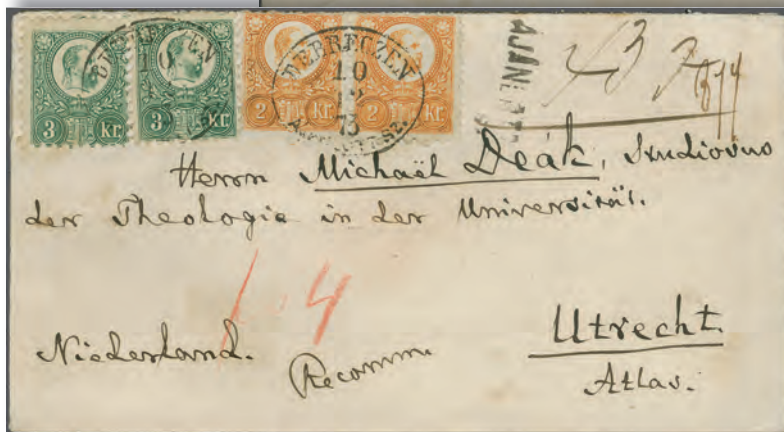 3 Kr.
3 Kr.
2 Kr.
2 Kr.
DEBRECZEN
DEBRECZEN
10
12
73
AJÁNLOTT
Herrn Michaël Deák, Studiosus
der Theologie in der Universität.
1.4
Niederland.
Recomm.
Utrecht.
Atlas.